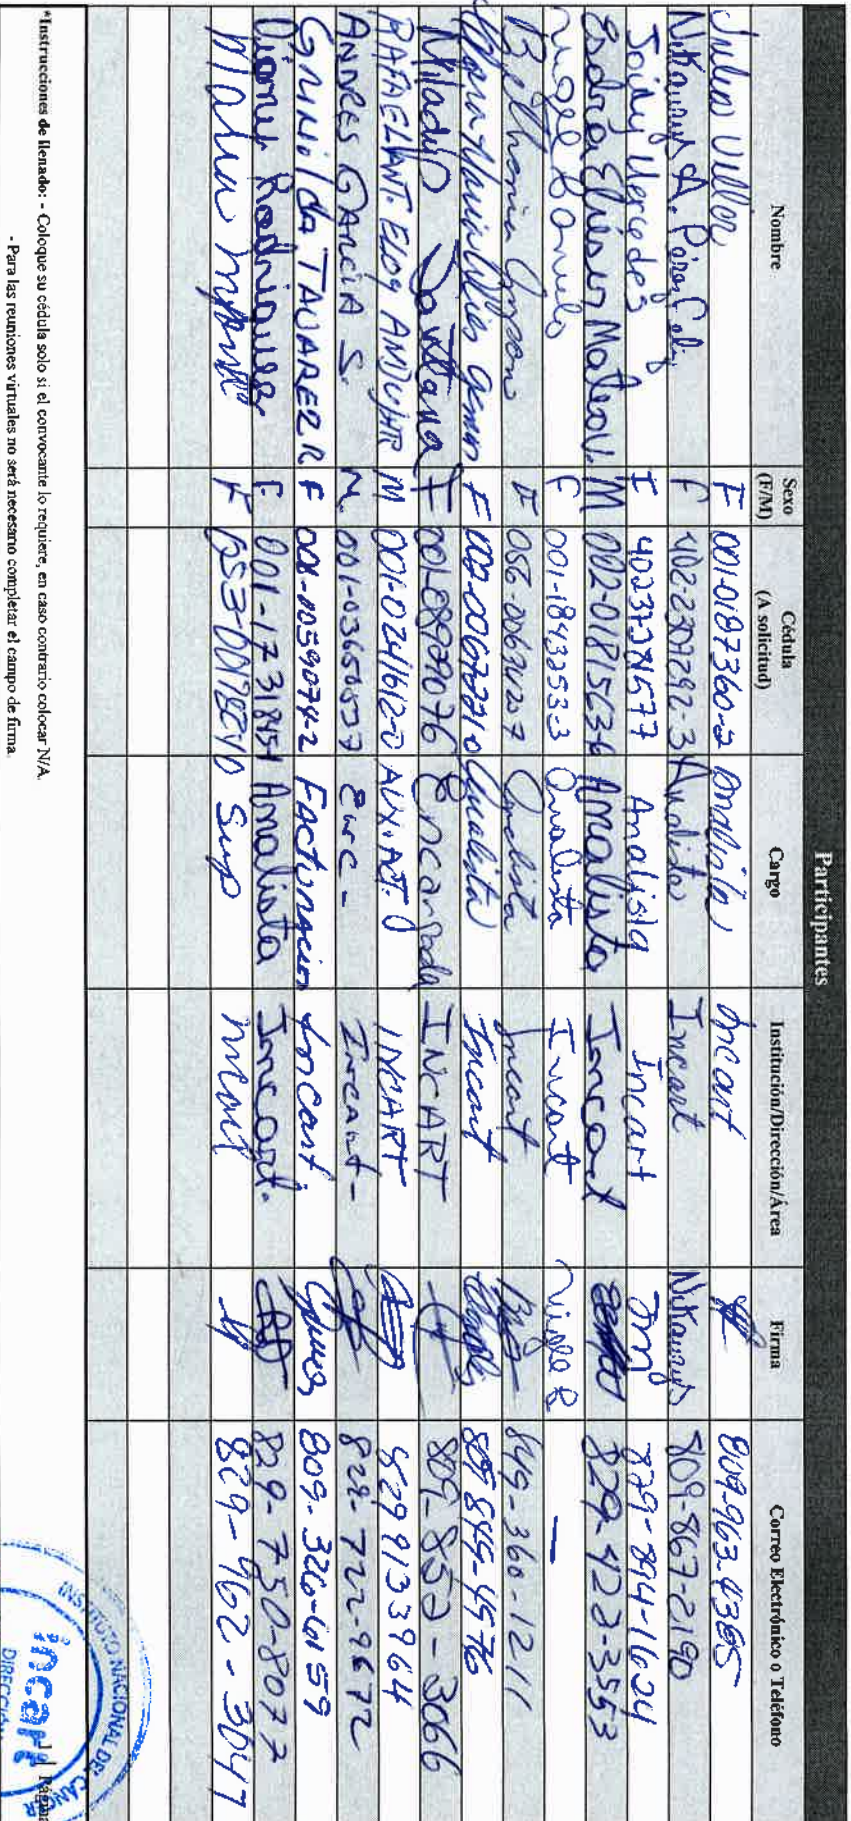 Participantes
Nombre Sexo (F/M) Cédula (A solicitud) Cargo Institución/Dirección/Área Firma Correo Electrónico o Teléfono
Julia Villar F 001-0187360-2 Analista Incart 809-963-4365
Nikaurys A. Pérez F 402-2309292-3 Analista Incart Nikaurys 809-867-2190
Joily Mercedes F Analista Incart JM 829-894-1624
Esdra Elieser Mateo V. M 002-0181563-6 Analista Incart 829-422-3553
F 001-1843253-3 Analista Incart —
Bethania F 056-0069420-7 Analista Incart 849-360-1211
Maria F Analista Incart 845-4576
Santana F Encargada INCART 809-852-3066
RAFAEL ANT. ELOY ANDUJAR M 001-0241612-0 AUX. ACT. INCART 829 9133964
ANDRES GARCIA S. M. Enc- Incart- 829-722-9672
GRINILDA TAVAREZ R F 001-0059074-2 Facturacion Incart 809-326-6159
Rodriguez F 001-1731845-1 Analista Incart. 829-750-8077
Maria F Sup Incart 829-962-3047
*Instrucciones de llenado: - Coloque su cédula solo si el convocante lo requiere, en caso contrario colocar N/A.
- Para las reuniones virtuales no será necesario completar el campo de firma.
1 | Página
INSTITUTO NACIONAL DEL CANCER
incart
DIRECCIÓN